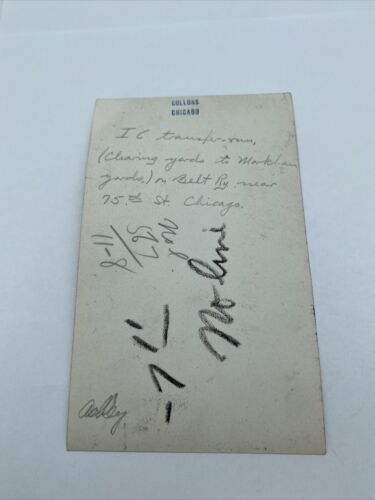 GULLONS
CHICAGO
I C transfer-run,
(Clearing yards to Markham
yards,) on Belt Ry near
75th St. Chicago.
8-11
No line